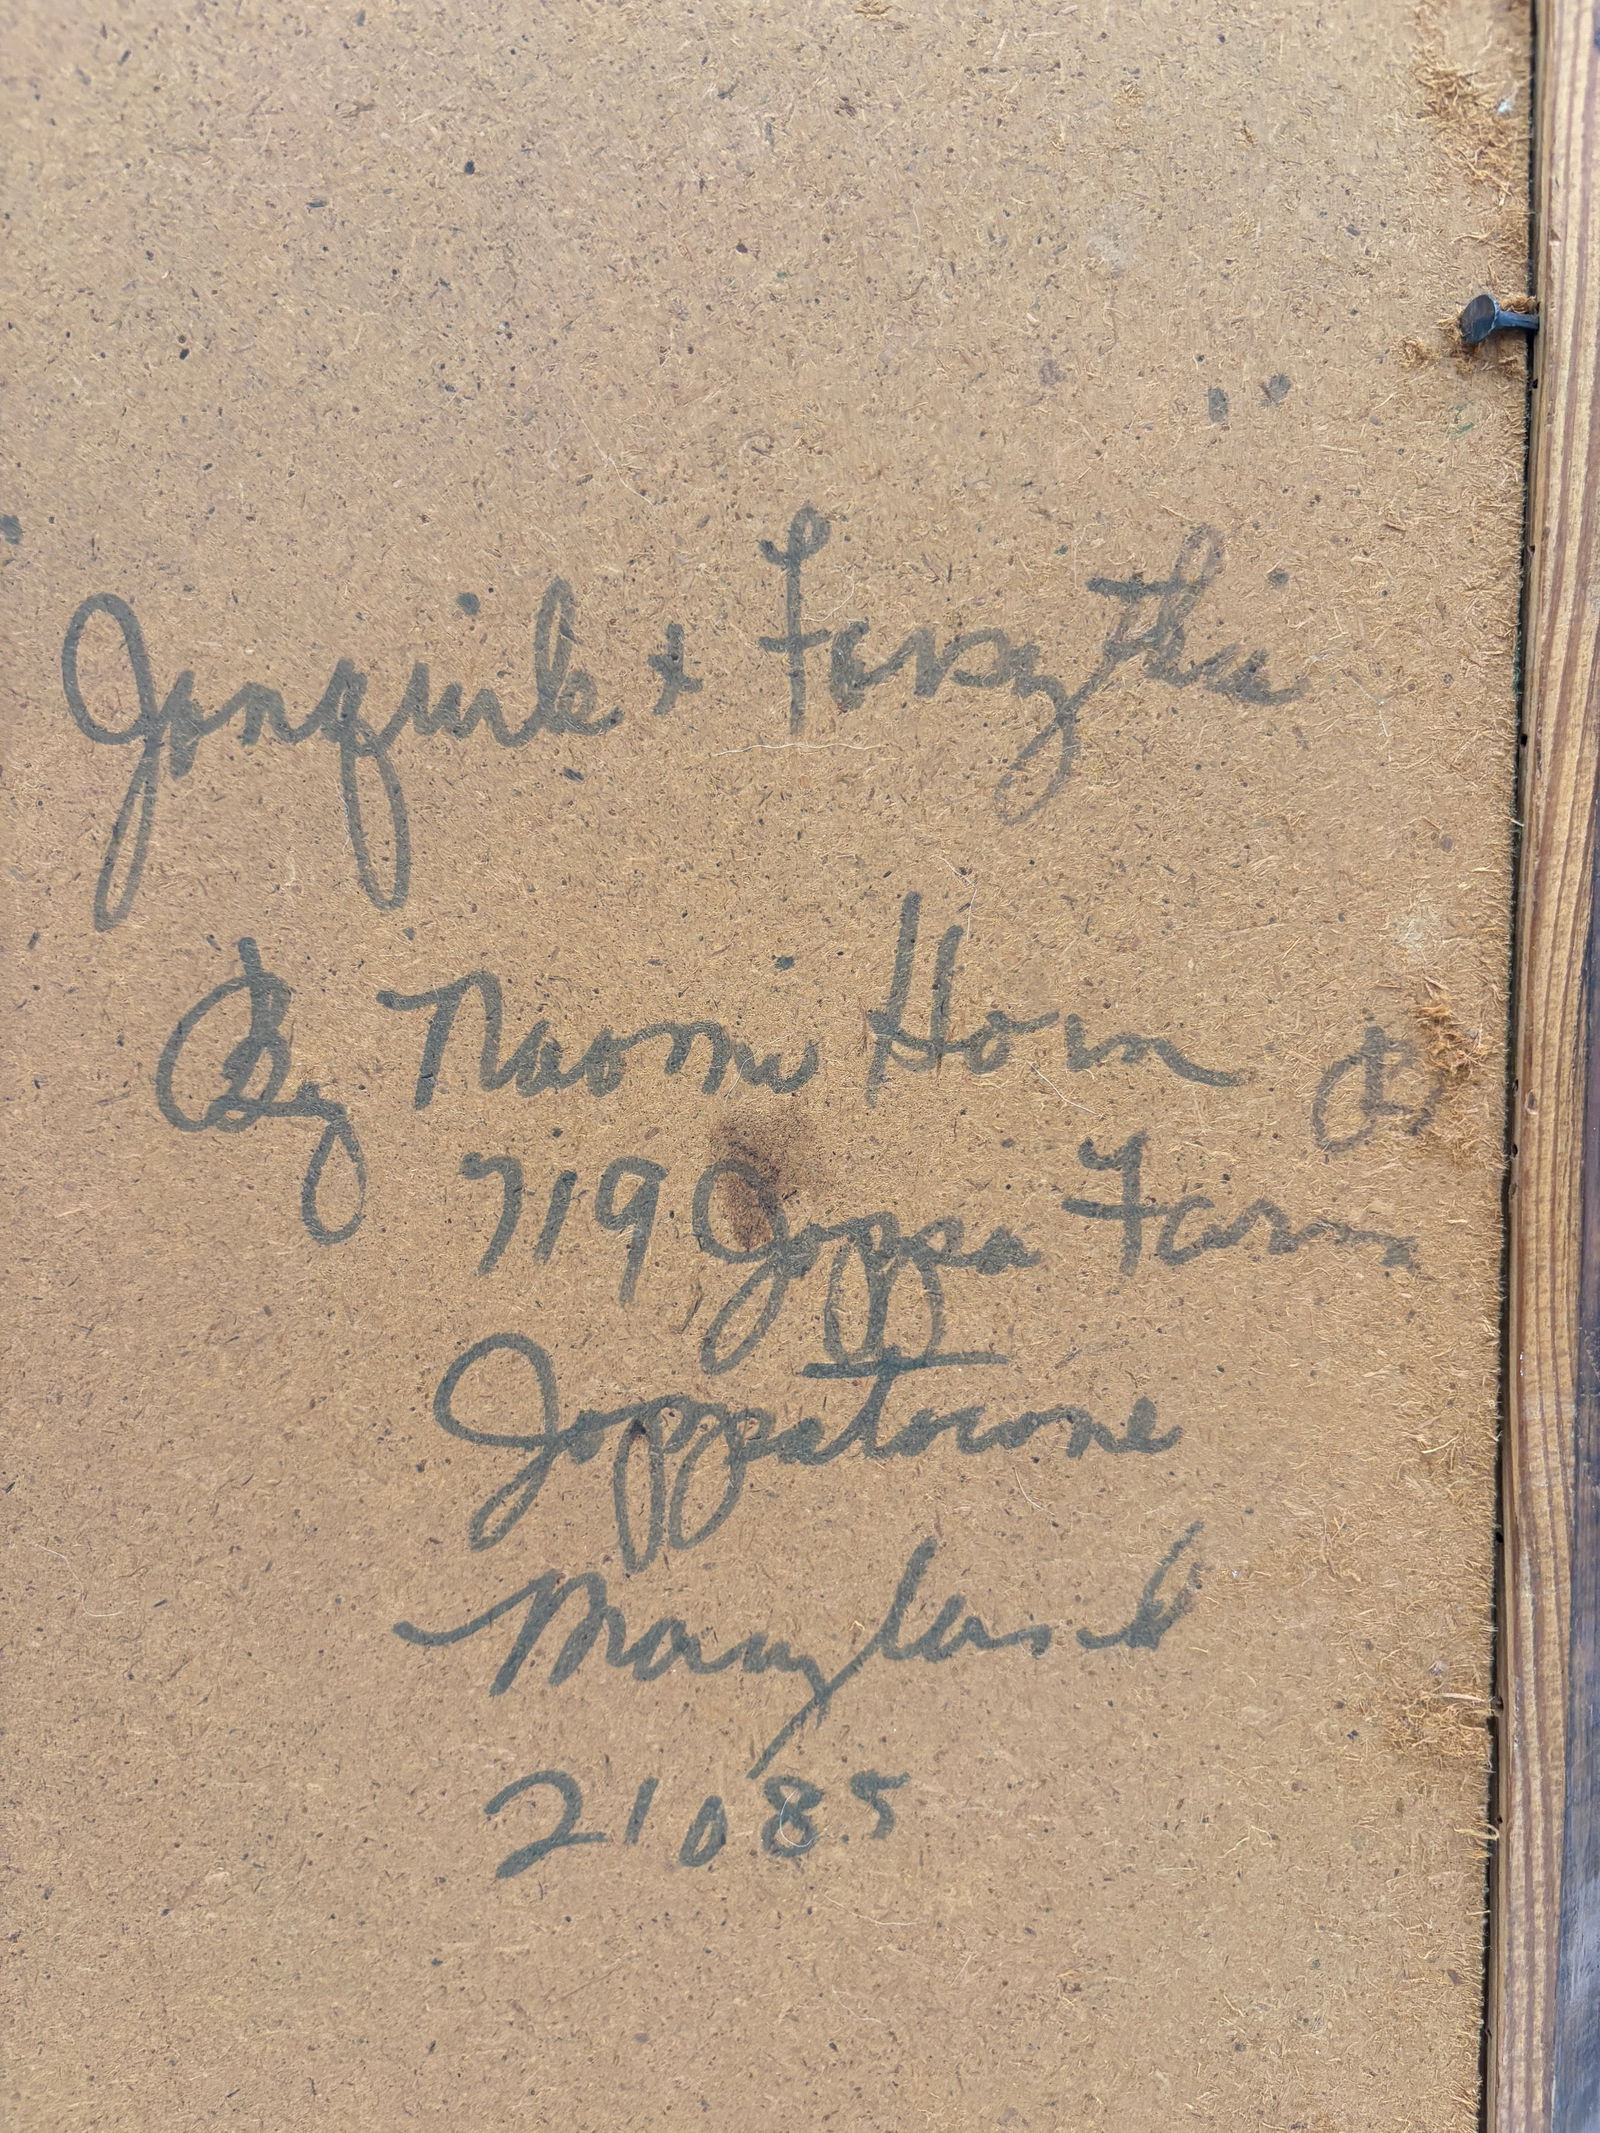 "Jonquils + Forsythia"
By Naomi Horn
719 Joppa Farm
Joppatowne
Maryland
21085